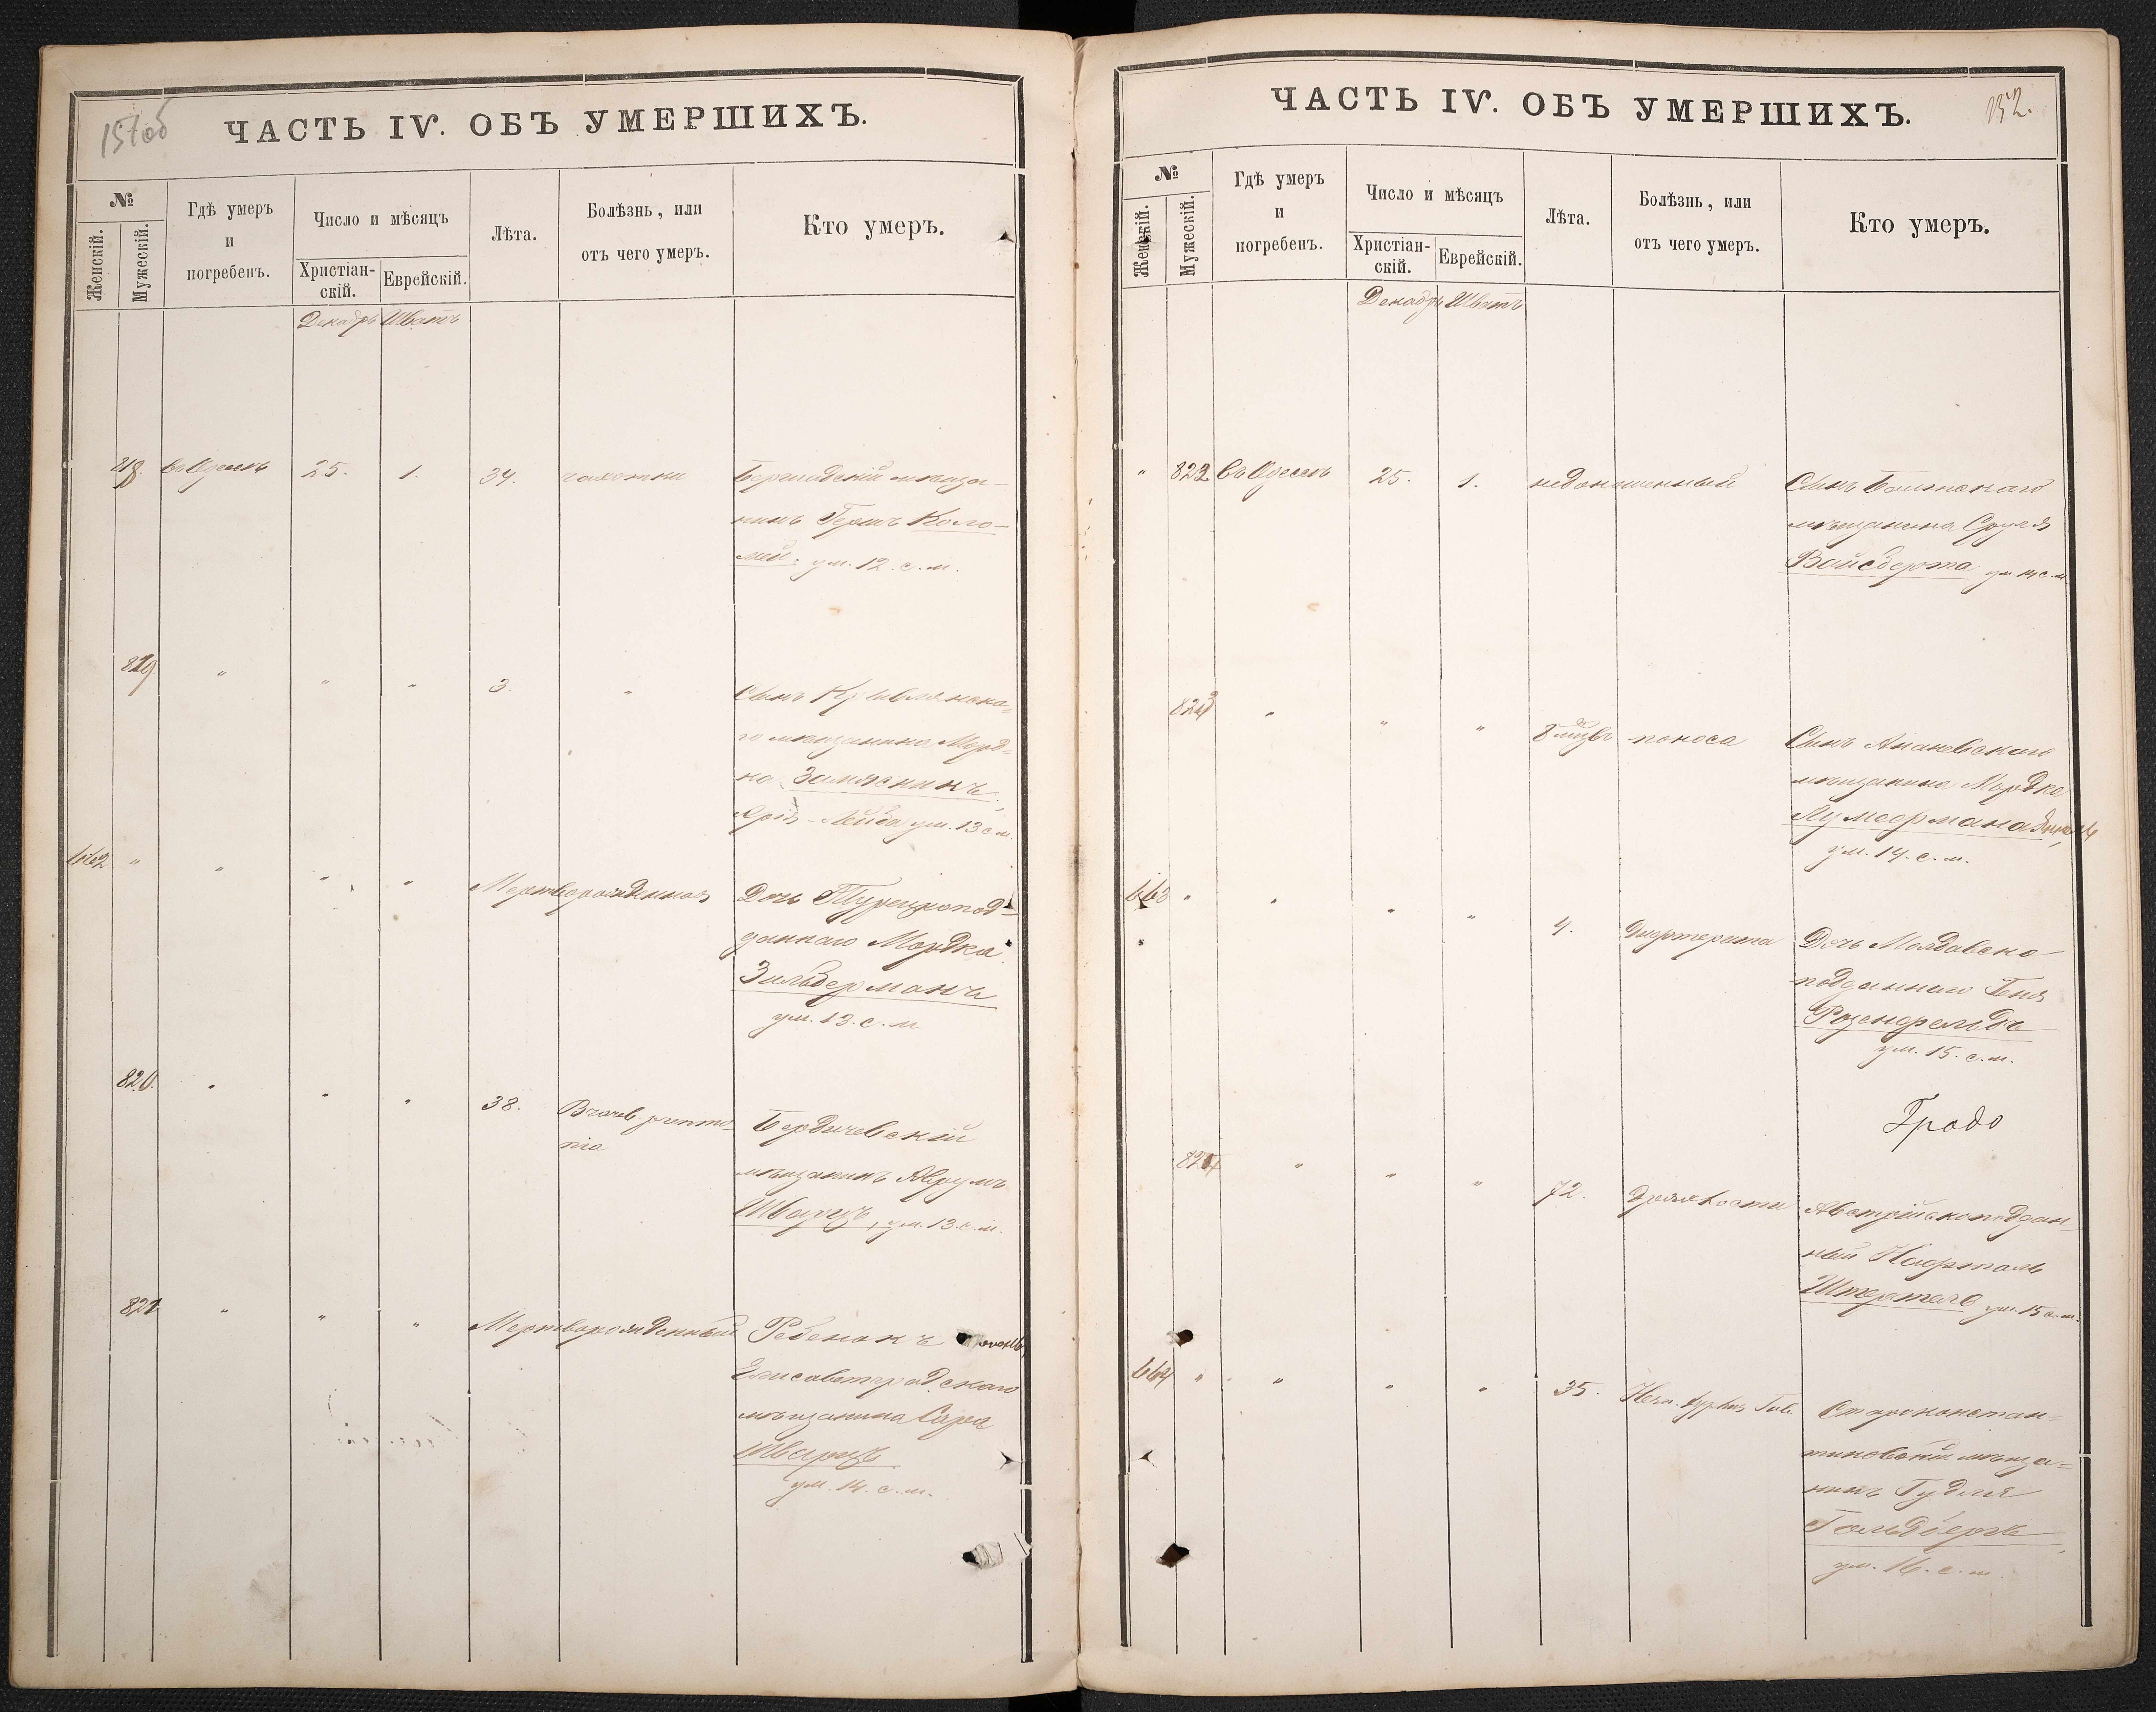 151об
ЧАСТЬ IV. ОБЪ УМЕРШИХЪ.
№
Женскій.
Мужескій.
Гдѣ умеръ
и
погребенъ.
Число и мѣсяцъ
Христіан-
скій.
Еврейскій.
Лѣта.
Болѣзнь, или
отъ чего умеръ.
Кто умеръ.
Декабрь Шватъ
818. въ Одессѣ 25. 1. 34. чахотки
мѣща-
нинъ Герш Коло-
мей. ум. 12. с. м.
819 " " " 3. "
Сынъ
го мѣщанина Морд-
ко Замяскинъ,
Лейба ум. 13 с. м.
662 " " " " Мертворожденная
Дочь Турецкопод-
даннаго Мордка
Зильберманъ
ум. 13. с. м
820. " " " 38.
Бердичевскій
мѣщанинъ Аврумъ
Шварцъ, ум. 13. с. м.
821 " " " Мертворожденный
Ребенокъ
Елисаветградскаго
мѣщанина Сруля
Шварцъ
ум. 14. с. м.
152.
ЧАСТЬ IV. ОБЪ УМЕРШИХЪ.
№
Женскій.
Мужескій.
Гдѣ умеръ
и
погребенъ.
Число и мѣсяцъ
Христіан-
скій.
Еврейскій.
Лѣта.
Болѣзнь, или
отъ чего умеръ.
Кто умеръ.
Декабрь Шватъ
" 822 въ Одессѣ 25. 1. недоношенный
Сынъ Балтскаго
мѣщанина Сруля
Вайсберга ум. 14 с. м.
823 " " " 8 поноса
Сынъ Ананьевскаго
мѣщанина Мордко
ум. 14. с. м.
663 " " " " 4. Дифтерита
Дочь Молдавско-
подданнаго Беня
Розенфельдъ
ум. 15. с. м.
824 " " " 72. Дряхлости
Австрійскоподдан-
ный Нафталь
ум. 15 с. м.
664 " " " " 35.
Староконстан-
тиновскій мѣща-
нинъ Гудля
Гольдбергъ,
ум. 16. с. м.